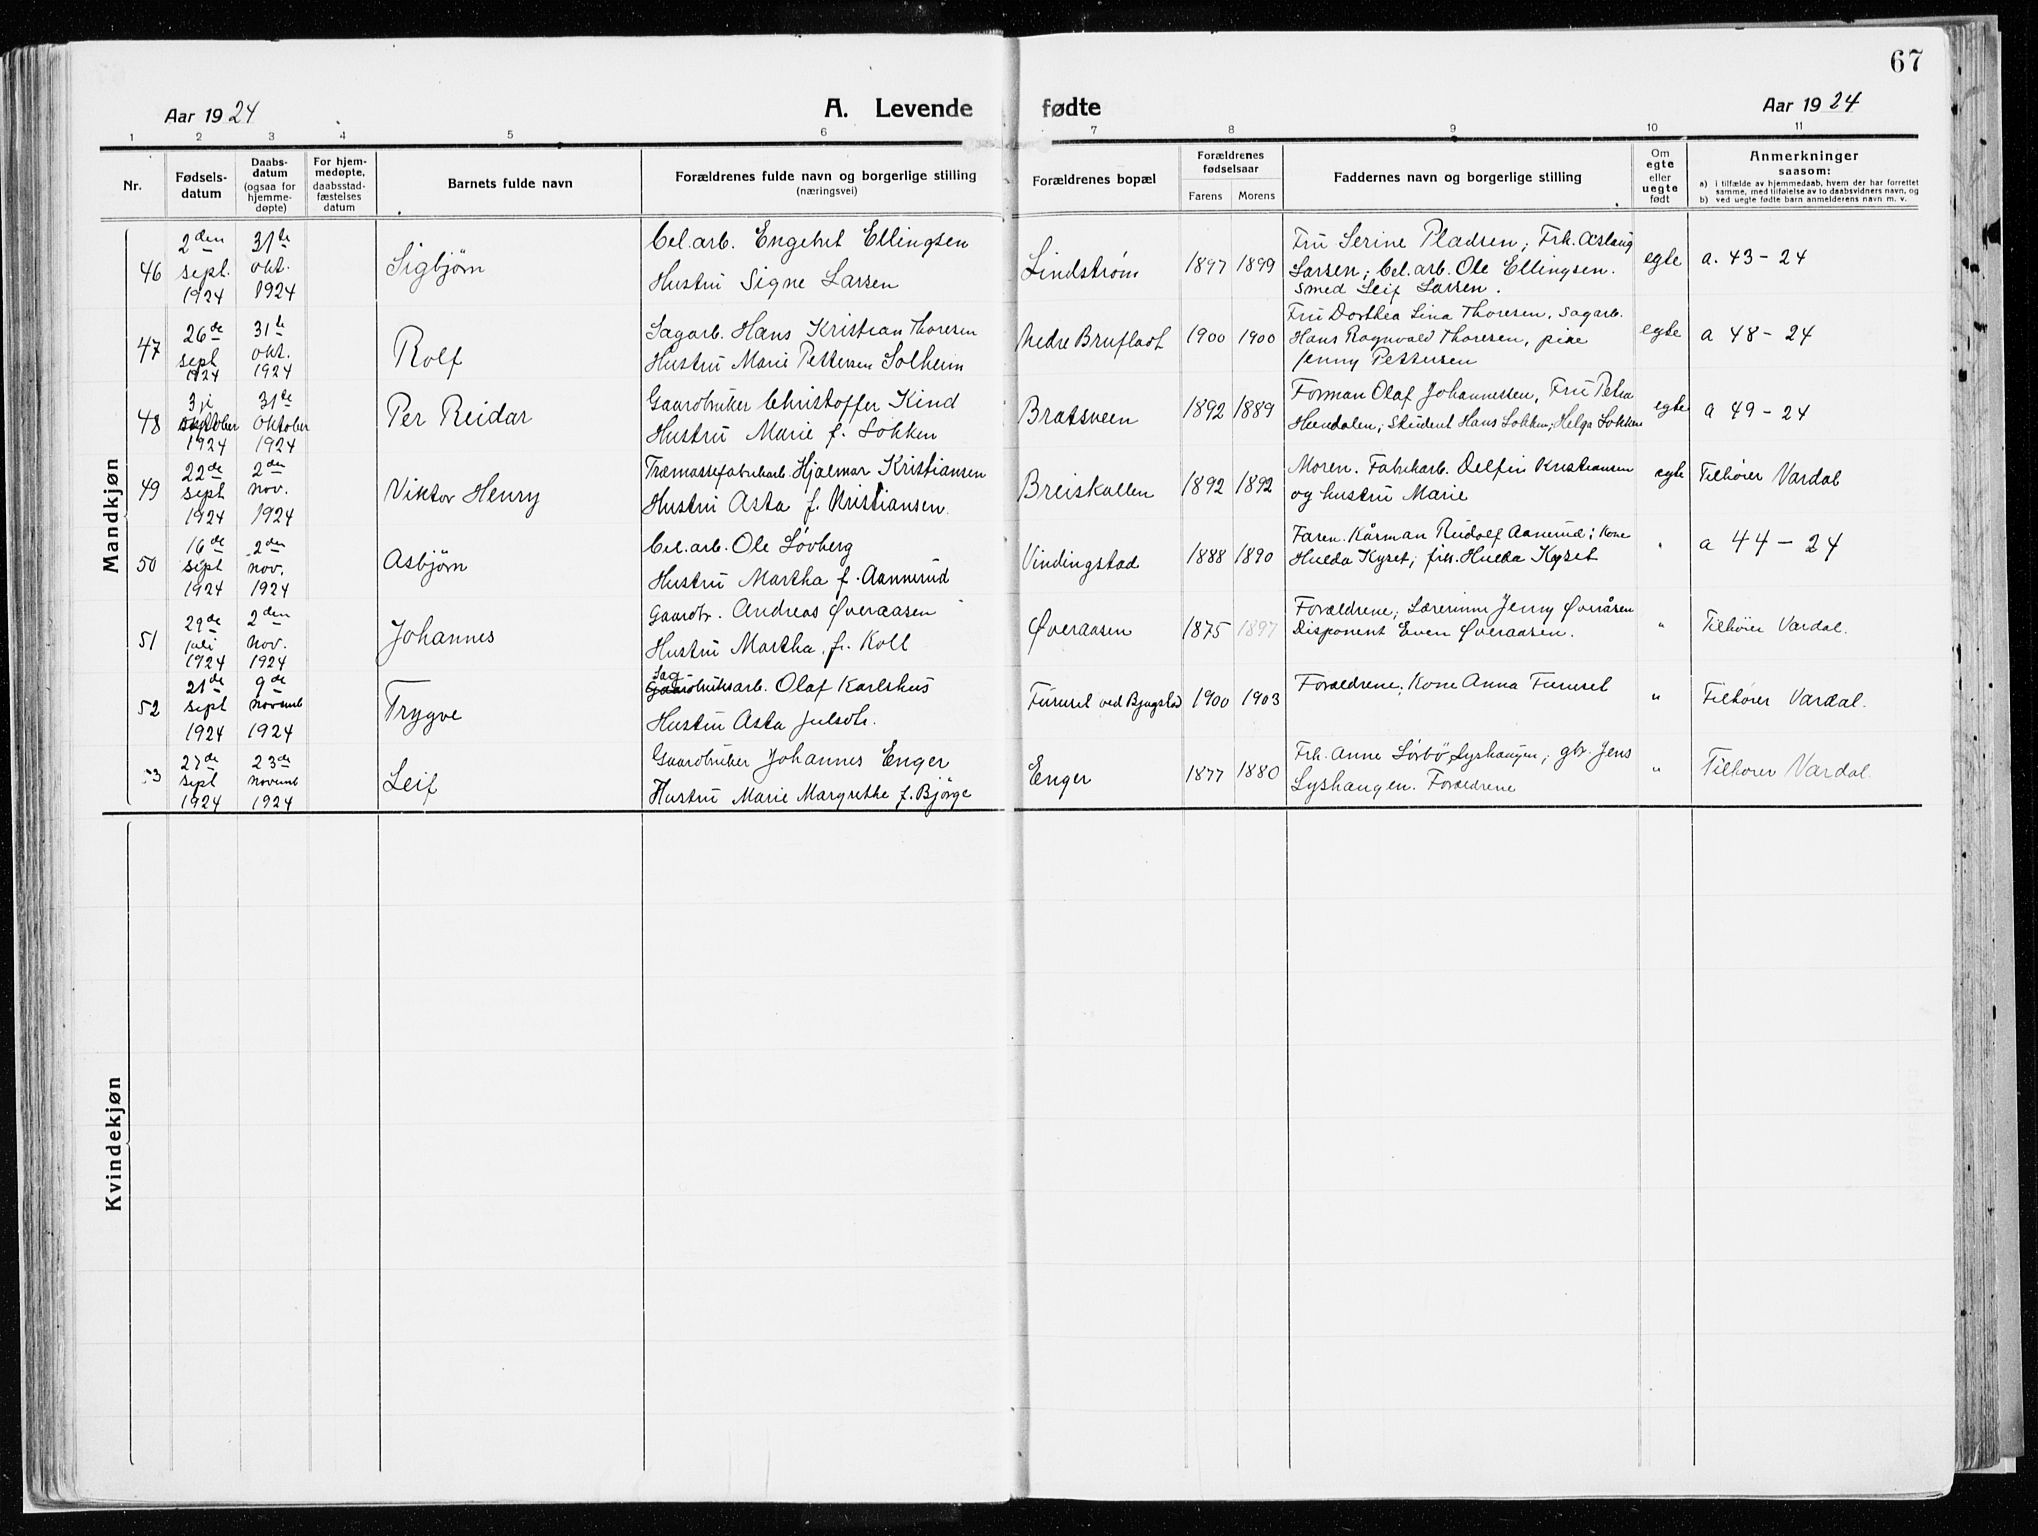 67
Aar 1924 A. Levende fødte Aar 1924
1 2 3 4 5 6 7 8 9 10 11
Nr.
Fødsels-
datum
Daabs-
datum
(ogsaa for
hjemme-
døpte)
For hjem-
medøpte,
daabsstad-
fæstelses
datum
Barnets fulde navn
Forældrenes fulde navn og borgerlige stilling
(næringsvei)
Forældrenes bopæl
Forældrenes
fødselsaar
Farens Morens
Faddernes navn og borgerlige stilling
Om
egte
eller
uegte
født
Anmerkninger
saasom:
a) i tilfælde av hjemmedaab, hvem der har forrettet
samme, med tilføielse av to daabsvidners navn, og
b) ved uegte fødte barn anmelderens navn m. v.
Mandkjøn
46
2den
sept.
1924
31te
okt.
1924
Sigbjørn
Cel.arb. Engebret Ellingsen
Hustru Signe Larsen
Lindstrøm
1897 1899
Fru Serine Pladsen; Frk. Aslaug
Larsen; Cel.arb. Ole Ellingsen.
smed Leif Larsen.
egte
a. 43-24
47
26de
sept
1924
31te
okt.
1924
Rolf
Sagarb. Hans Kristian Thoresen
Hustru Marie Pettersen Solheim
Nedre Bruflaat
1900 1900
Fru Dorthea Lina Thoresen, sagarb.
Hans Ragnvald Thoresen, pike
Jenny Pettersen
egte
a 48-24
48
3je
oktober
1924
31te
oktober
1924
Per Reidar
Gaardbruker Christoffer Kind
Hustru Marie f. Løkken
Bratsveen
1892 1889
Forman Olaf Johannessen, Fru Petra
Hendalen; Student Hans Løkken; Helga Løkken
egte
a 49-24
49
22de
sept
1924
2den
nov.
1924
Viktor Henry
Træmassefabrikarb Hjalmar Kristiansen
Hustru Asta f. Kristiansen.
Breiskallen
1892 1892
Moren. Fabrikarb. Delfin Kristiansen
og hustru Marie
egte
Tilhører Vardal
50
16de
sept
1924
2den
nov.
1924
Asbjørn
Cel.arb. Ole Løvberg
Hustru Martha f. Aannerud
Vindingstad
1888 1890
Faren. Kårman Rudolf Aanerud; Kone
Hulda Kyset; frk. Hulda Kyset
"
a 44-24
51
29de
juli
1924
2den
nov.
1924
Johannes
Gaardbr. Andreas Øveraasen
Hustru Martha, f. Koll
Øveraasen
1875 1897
Forældrene; Lærerinne Jenny Øveråsen
Disponent Even Øveraasen.
"
Tilhører Vardal.
52
21de
sept
1924
9de
novemb
1924
Trygve
Sag-
Gaardbruksarb. Olaf Karlshus
Hustru Asta Julsdtr.
Furuset ved Bjugstad
1900 1903
Forældrene. Kone Anna Furuset
"
Tilhører Vardal.
53
27de
sept
1924
23de
novemb
1924
Leif
Gaardbruker Johannes Enger
Hustru Marie Margrethe f. Bjørge
Enger
1877 1880
Frk. Anne Sørbø, Lyshaugen; gbr. Jens
Lyshaugen. Forældrene
"
Tilhører Vardal.
Kvindekjøn